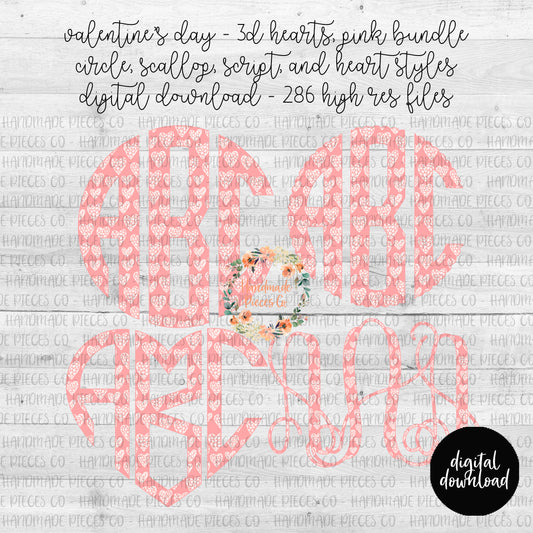 valentine's day - 3d hearts, pink bundle
circle, scallop, script, and heart styles
digital download - 286 high res files
HANDMADE PIECES CO - HANDMADE PIECES CO - HANDMADE PIECES CO
ABC ABC
Handmade
Pieces Co
ABC
digital
download